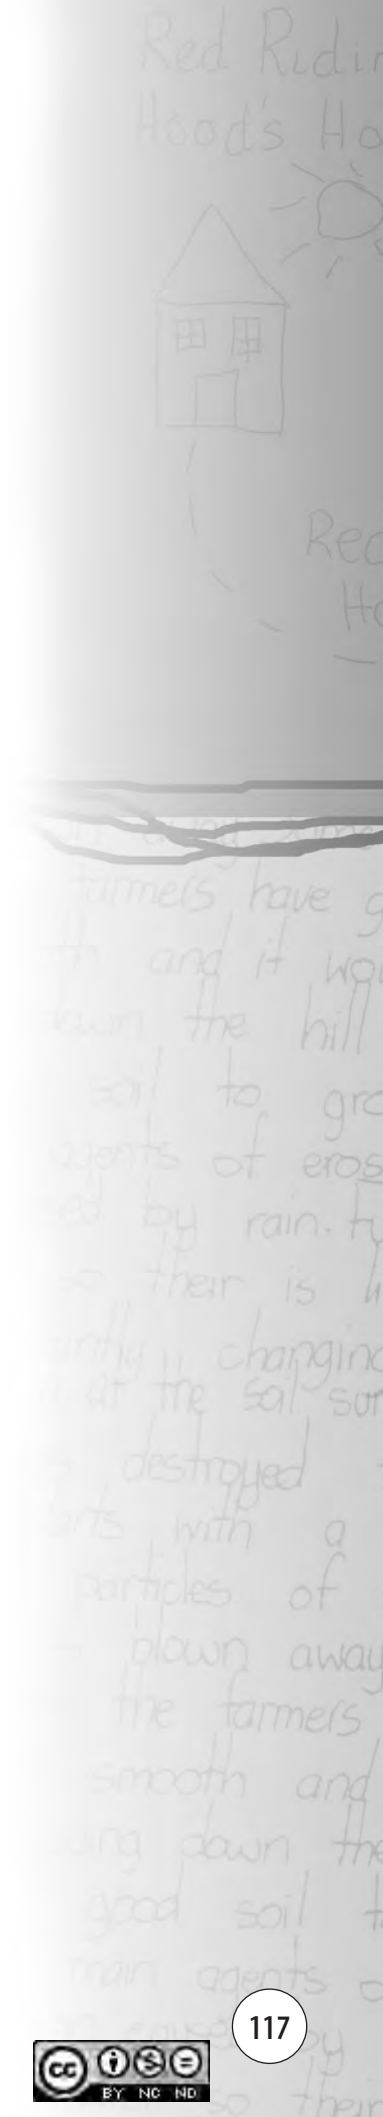 Red Ridin
Hood's Ho
Red
Ho
farmers have g
and it wou
down the hill
soil to gro
agents of eros
sed by rain. Ty
so their is li
antly changing
at the soil sur
destroyed
arts with a
particles of
blown away
the farmers
smooth and
down the
good soil t
main agents o
by
117
so their
cc
BY NC ND